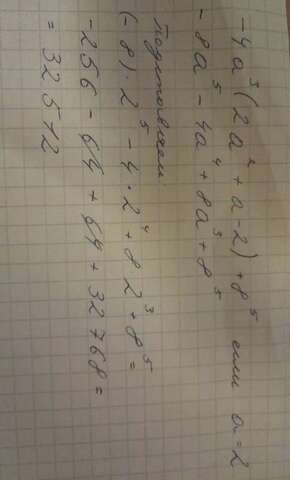 -4a³(2a² + a - 2) + 8⁵ если a = 2
- 8a⁵ - 4a⁴ + 8a³ + 8⁵
Подставляем:
(-8)·2⁵ - 4·2⁴ + 8 2³ + 8⁵ =
-256 - 64 + 64 + 32768 =
= 32512